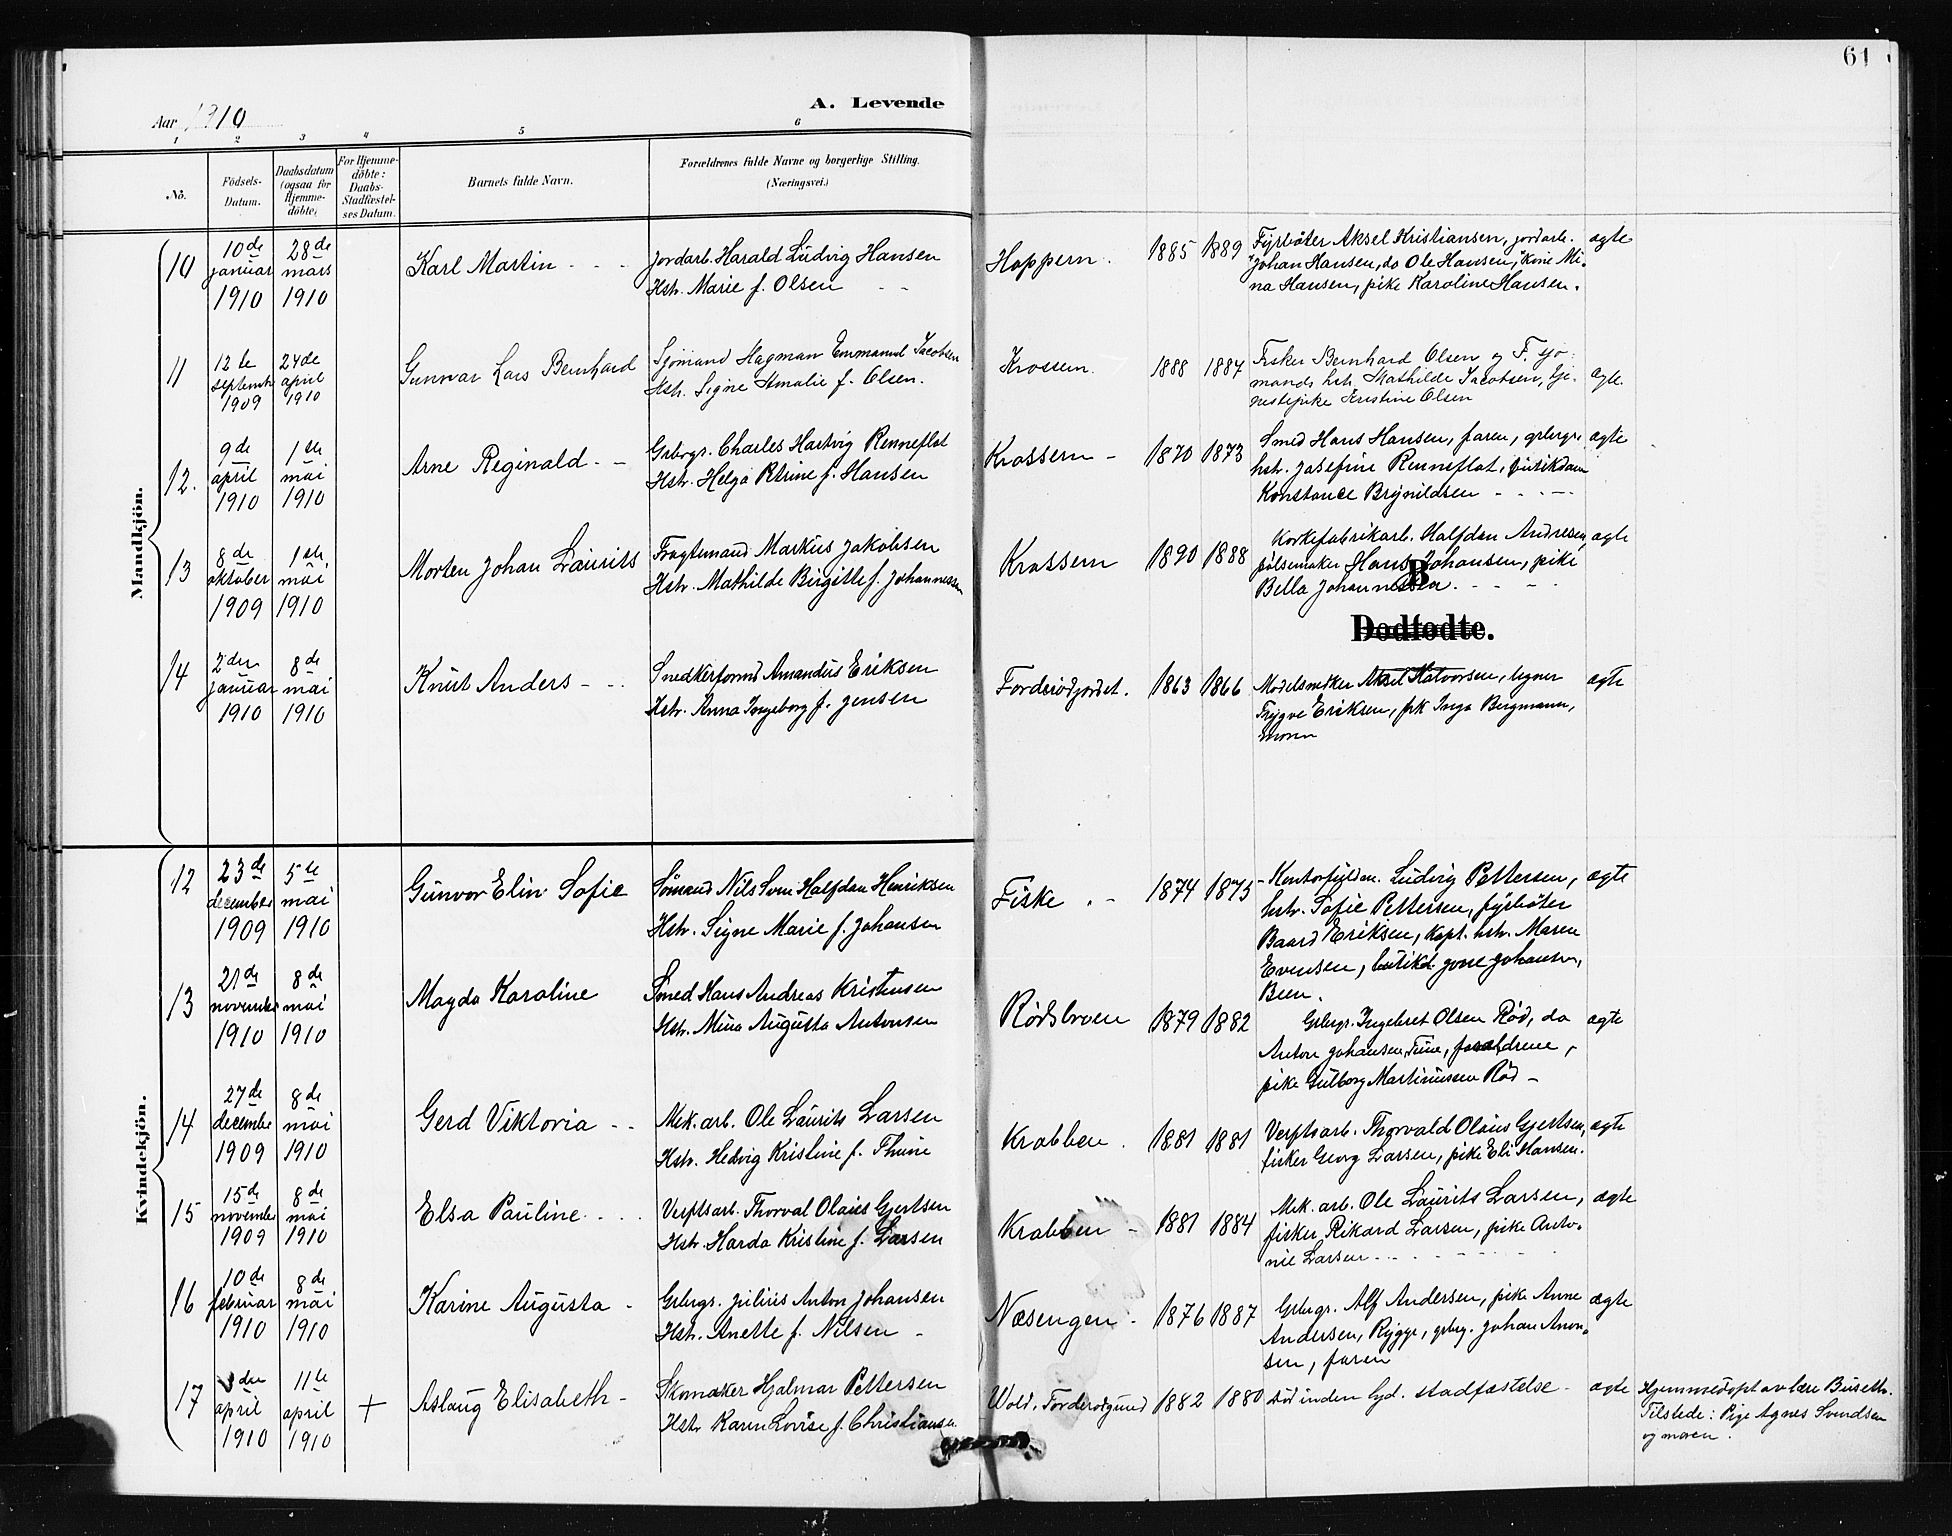 61
A. Levende
Aar 1910
1 2 3 4 5 6
No.
Födsels-
Datum.
Daabsdatum
(ogsaa for
Hjemme-
döbte)
For Hjemme-
döbte:
Daabs-
Stadfæstel-
ses Datum.
Barnets fulde Navn.
Forældrenes fulde Navne og borgerlige Stilling.
(Næringsvei.)
Mandkjön.
10
10de
januar
1910
28de
mars
1910
Karl Martin
Jordarb. Harald Ludvig Hansen
Hstr. Marie f. Olsen
Hoppern.
1885 1889
Fyrbøter Aksel Kristiansen, jordarb.
Johan Hansen, do Ole Hansen, kone Mi-
na Hansen, pike Karoline Hansen.
ægte
11
12te
septemb
1909
24de
april
1910
Gunnar Lars Bernhard
Sjømand Hagman Emmanuel Jacobsen
Hstr. Signe Amalie f. Olsen.
Krossern.
1888 1884
Fisker Bernhard Olsen og F. sjø-
mands hstr. Mathilde Jacobsen, tje-
nestepike Kristine Olsen
ægte.
12.
9de
april
1910
1ste
mai
1910
Arne Reginald
Grbrgr. Charles Hartvig Renneflot
Hstr. Helga Petrine f. Hansen
Krossern
1870 1873
Smed Hans Hansen, faren, grbrgr.
hstr. Josefine Renneflot, butikdam
Konstance Brynildsen
ægte
13
8de
oktober
1909
1ste
mai
1910
Morten Johan Laurits
Fragtemand Markus Jakobsen
Hstr. Mathilde Birgitte f. Johannessen
Krossern
1890 1888
Korkefabrikarb. Halfdan Andresen,
pølsemaker Hans Johansen, pike
Bella Johannessen.
ægte
B
Dødfødte.
14
2den
januar
1910
8de
mai
1910
Knut Anders
Snedkerformd Amandus Eriksen
Hstr. Anna Ingeborg f. Jensen
Forderødjordet.
1863 1866
Modelsnedker Aksel Halvorsen, tegner
Trygve Eriksen, frk Inga Bergmann,
moren
ægte
Kvindekjön.
12
23de
december
1909
5te
mai
1910
Gunvor Elin Sofie
Sømand Nils Sven Halfdan Henriksen
Hstr. Signe Marie f. Johansen
Fiske
1874 1875
Kontorfuldm. Ludvig Pettersen,
hstr. Sofie Pettersen, fyrbøter
Baard Eriksen, kapt. hstr. Maren
Evensen, butikd. Jone Johansen,
Been.
ægte
13
21de
november
1910
8de
mai
1910
Magda Karoline
Smed Hans Andreas Kristensen
Hstr. Mina Augusta Antonsen
Rødsbroen
1879 1882
Grbrgr. Ingebret Olsen Rød, do
Anton Johansen, Tune, forældrene,
pike Gulborg Martinussen Rød
ægte
14
27de
decembe
1909
8de
mai
1910
Gerd Viktoria
Mek. arb. Ole Laurits Larsen
Hstr. Hedvig Kristine f. Thune
Krabben.
1881 1881
Verftsarb. Thorvald Olaus Gjertsen,
fisker Georg Larsen, pike Eli Hansen.
ægte
15
15de
novembe
1909
8de
mai
1910
Elsa Pauline
Verftsarb. Thorval Olaus Gjertsen
Hstr. Harda Kristine f. Larsen
Krabben
1881 1884
Mek. arb. Ole Laurits Larsen,
fisker Rikard Larsen, pike Anto-
nie Larsen
ægte
16
10de
februar
1910
8de
mai
1910
Karine Augusta
Grbrgr. Julius Anton Johansen
Hstr. Anette f. Nilsen
Næsengen
1876 1887
Grbrgr. Alf Andersen, pike Anne
Andersen, Rygge, grbrg. Johan Anon-
sen, faren
ægte
17
3den
april
1910
11te
april
1910
+
Aslaug Elisabeth
Skomaker Hjalmar Pettersen
Hstr Karen Lovise f. Christiansen
Wold, Forderødgrund
1882 1880
død inden Gd. stadfæstelse
ægte
Hjemmedøpt av lære Buseth.
Tilstede: Pige Agnes Svendsen
og moren.